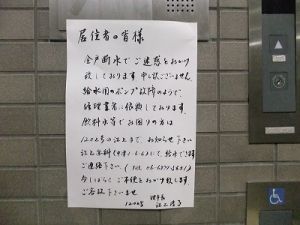 居住者の皆様
全戸断水でご迷惑をおかけ
致しております 申し訳ございません
給水用のポンプ故障のようで
修理業者に依頼しております。
飲料水等でお困りの方は
1206号の辻上まで、お知らせ下さい
ご連絡下さい。(TEL
今しばらくご不便をおかけ致します。
ご容赦下さいませ
1206号 理事長